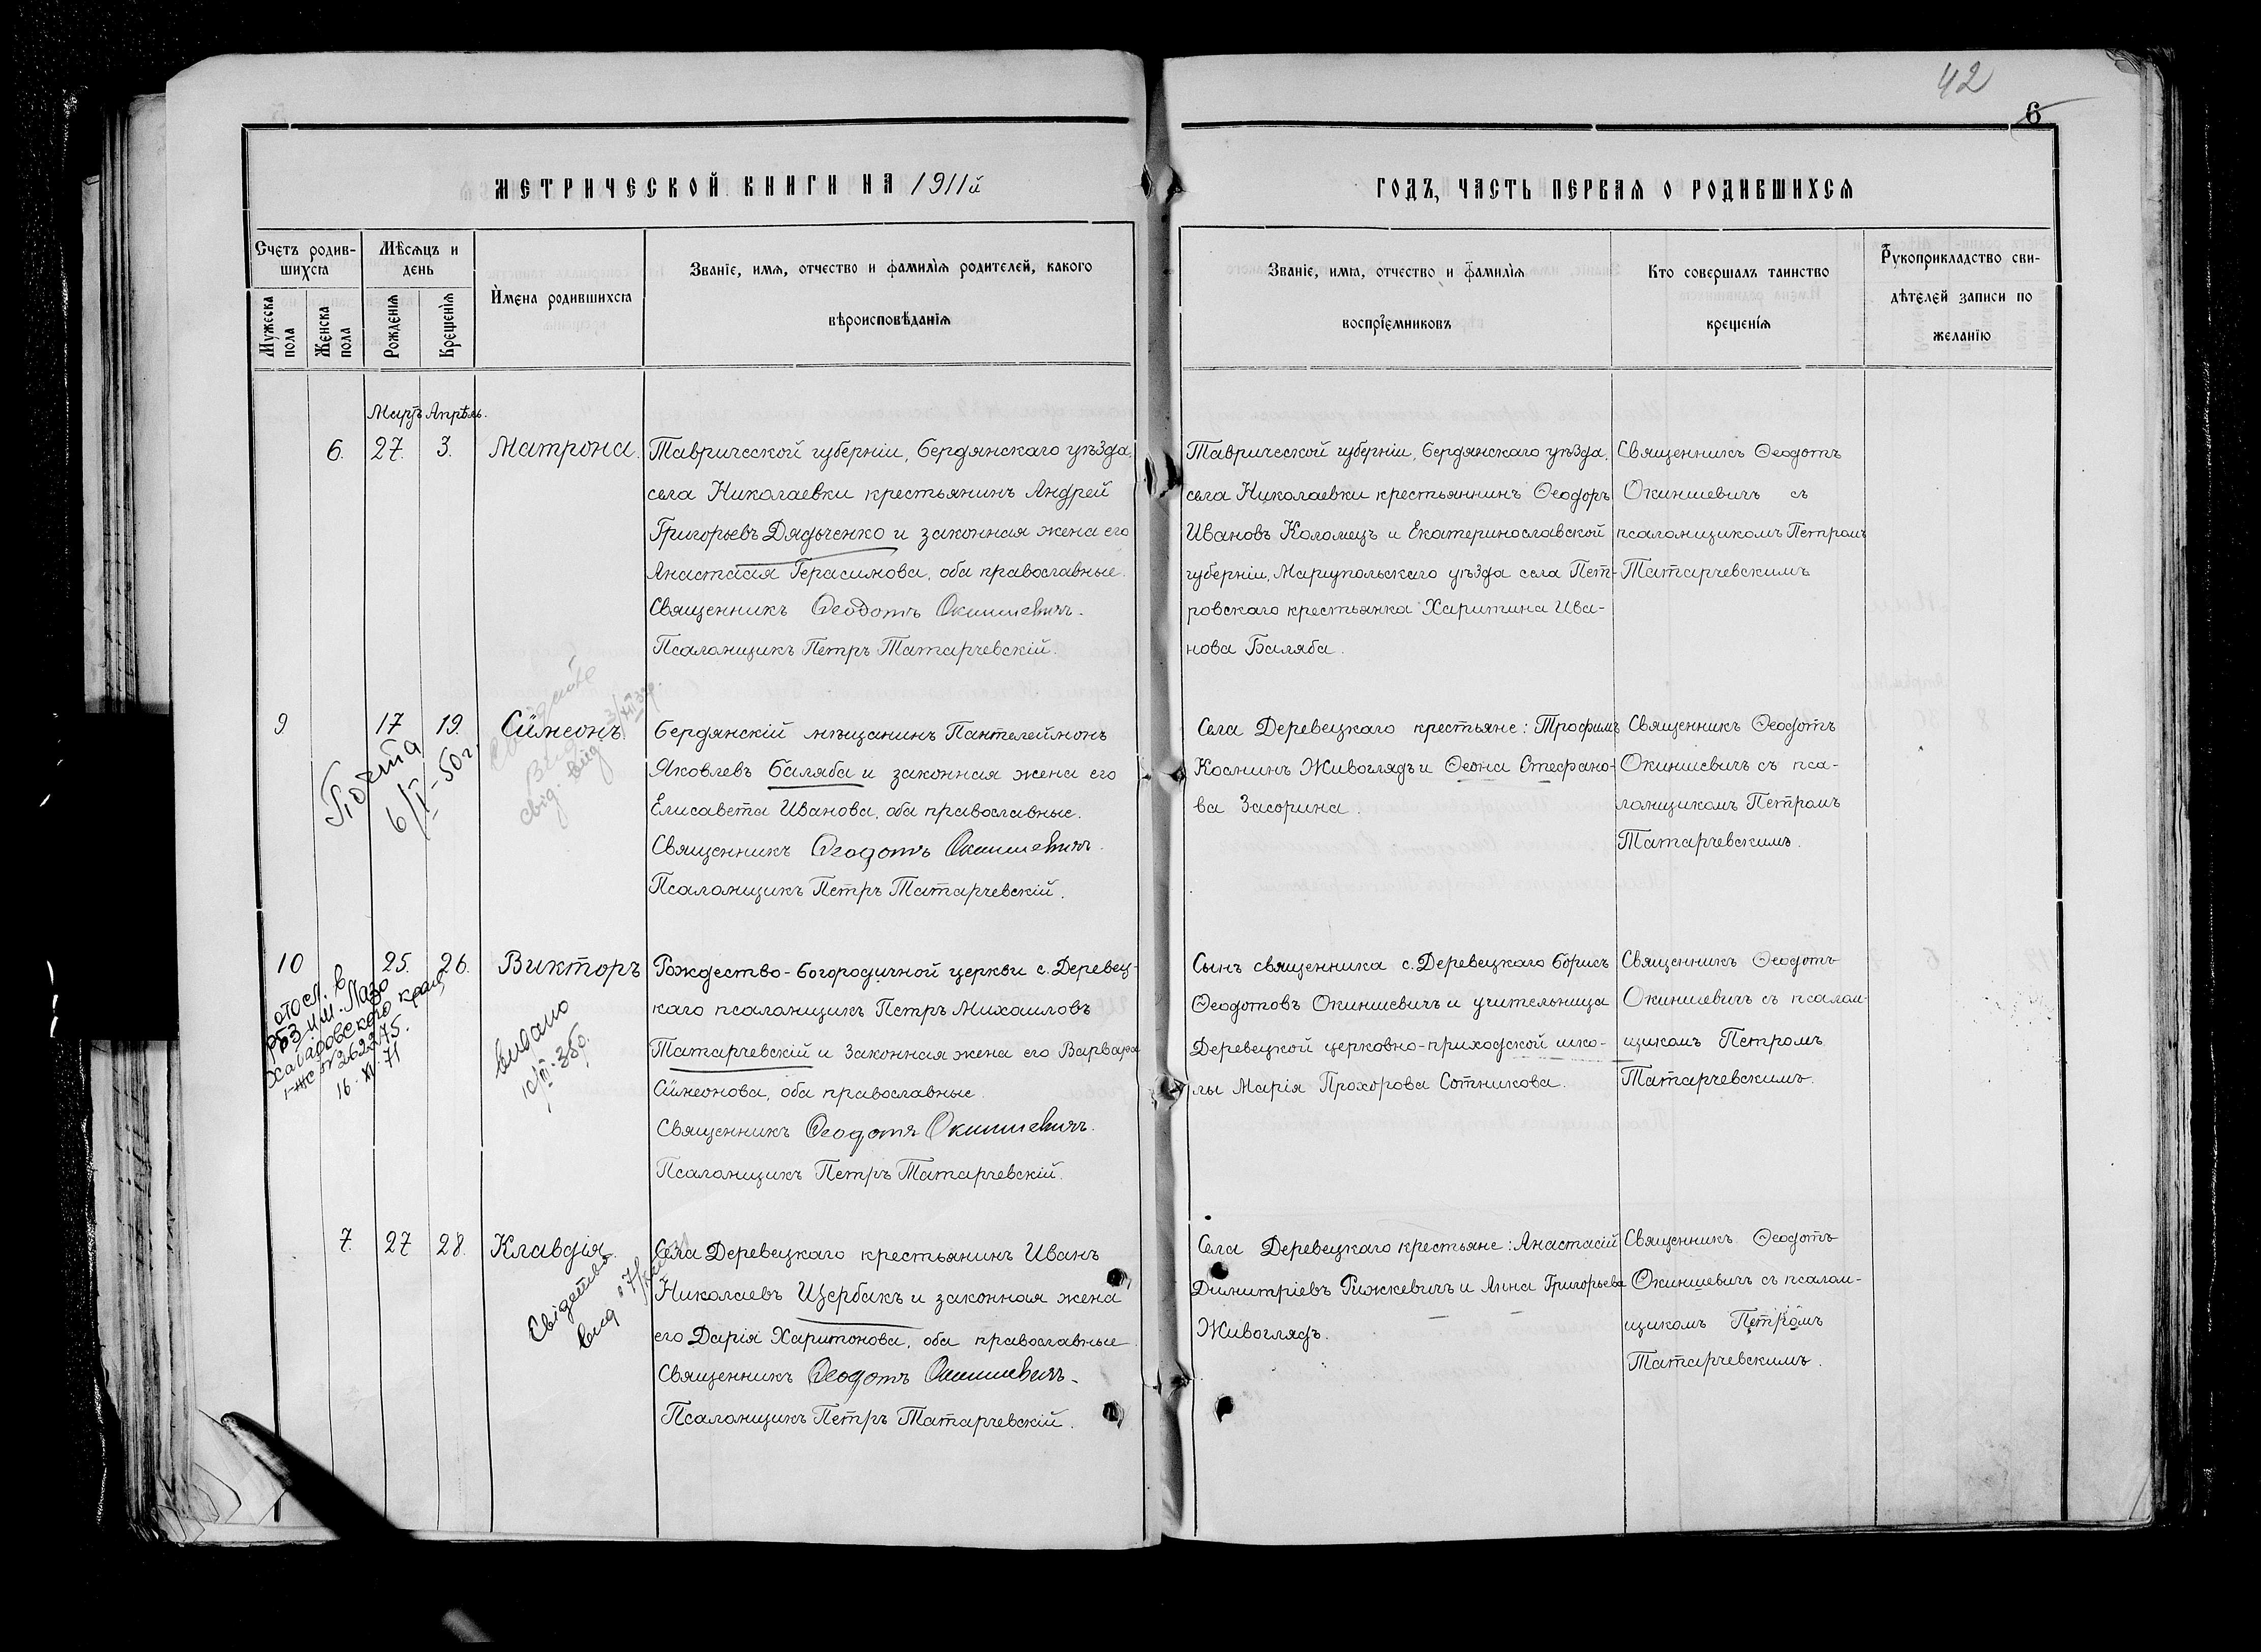 42
6
МЕТРИЧЕСКОЙ КНИГИ НА 1911й
ГОДЪ, ЧАСТЬ ПЕРВАЯ О РОДИВШИХСЯ
Счетъ родив-
шихся
Мѣсяцъ и
день
Мужеска
пола
Женска
пола
Рожденія
Крещенія
Имена родившихся
Званіе, имя, отчество и фамилія родителей, какого
вѣроисповѣданія
Званіе, имя, отчество и фамилія
воспріемниковъ
Кто совершалъ таинство
крещенія
Рукоприкладство сви-
дѣтелей записи по
желанію
Мартъ Апрѣль.
6. 27. 3. Матрона.
Таврической губерніи, Бердянскаго уѣзда,
села Николаевки крестьянинъ Андрей
Григорьевъ Дядьченко и законная жена его
Анастасія Герасимова, оба православные.
Священникъ Ѳеодотъ Окиншевичъ.
Псаломщикъ Петръ Татарчевскій.
Таврической губерніи, Бердянскаго уѣзда,
села Николаевки крестьянинъ Ѳеодоръ
Ивановъ Коломецъ и Екатеринославской
губерніи, Маріупольскаго уѣзда села Пет-
ровскаго крестьянка Харитина Ива-
нова Баляба.
Священникъ Ѳеодотъ
Окиншевичъ съ
псаломщикомъ Петромъ
Татарчевскимъ
9 17 19. Сѵмеонъ.
Почта
6/V-50г.
Бердянскій мѣщанинъ Пантелеймонъ
Яковлевъ Баляба и законная жена его
Елисавета Иванова, оба православные.
Священникъ Ѳеодотъ Окиншевичъ.
Псаломщикъ Петръ Татарчевскій.
Села Деревецкаго крестьяне: Трофимъ
Косминъ Живоглядъ и Ѳеона Стефано-
ва Засорина.
Священникъ Ѳеодотъ
Окиншевичъ съ пса-
ломщикомъ Петромъ
Татарчевскимъ.
10 25. 26. Викторъ
р-на им. Лазо
Хабаровского края
16.XI.71
видано
Рождество-Богородичной церкви с. Деревец-
каго псаломщикъ Петръ Михаиловъ
Татарчевскій и законная жена его Варвара
Сѵмеонова, оба православные.
Священникъ Ѳеодотъ Окиншевичъ.
Псаломщикъ Петръ Татарчевскій.
Сынъ священника с. Деревецкаго Борисъ
Ѳеодотовъ Окиншевичъ и учительница
Деревецкой церковно-приходской шко-
лы Марія Прохорова Сотникова.
Священникъ Ѳеодотъ
Окиншевичъ съ псалом-
щикомъ Петромъ
Татарчевскимъ.
7. 27 28. Клавдія.
Села Деревецкаго крестьянинъ Иванъ
Николаевъ Щербакъ и законная жена
его Дарія Харитонова, оба православные.
Священникъ Ѳеодотъ Окиншевичъ.
Псаломщикъ Петръ Татарчевскій.
Села Деревецкаго крестьяне: Анастасій
Димитріевъ Рижкевичъ и Анна Григорьева
Живоглядъ.
Священникъ Ѳеодотъ
Окиншевичъ съ псалом-
щикомъ Петромъ
Татарчевскимъ.